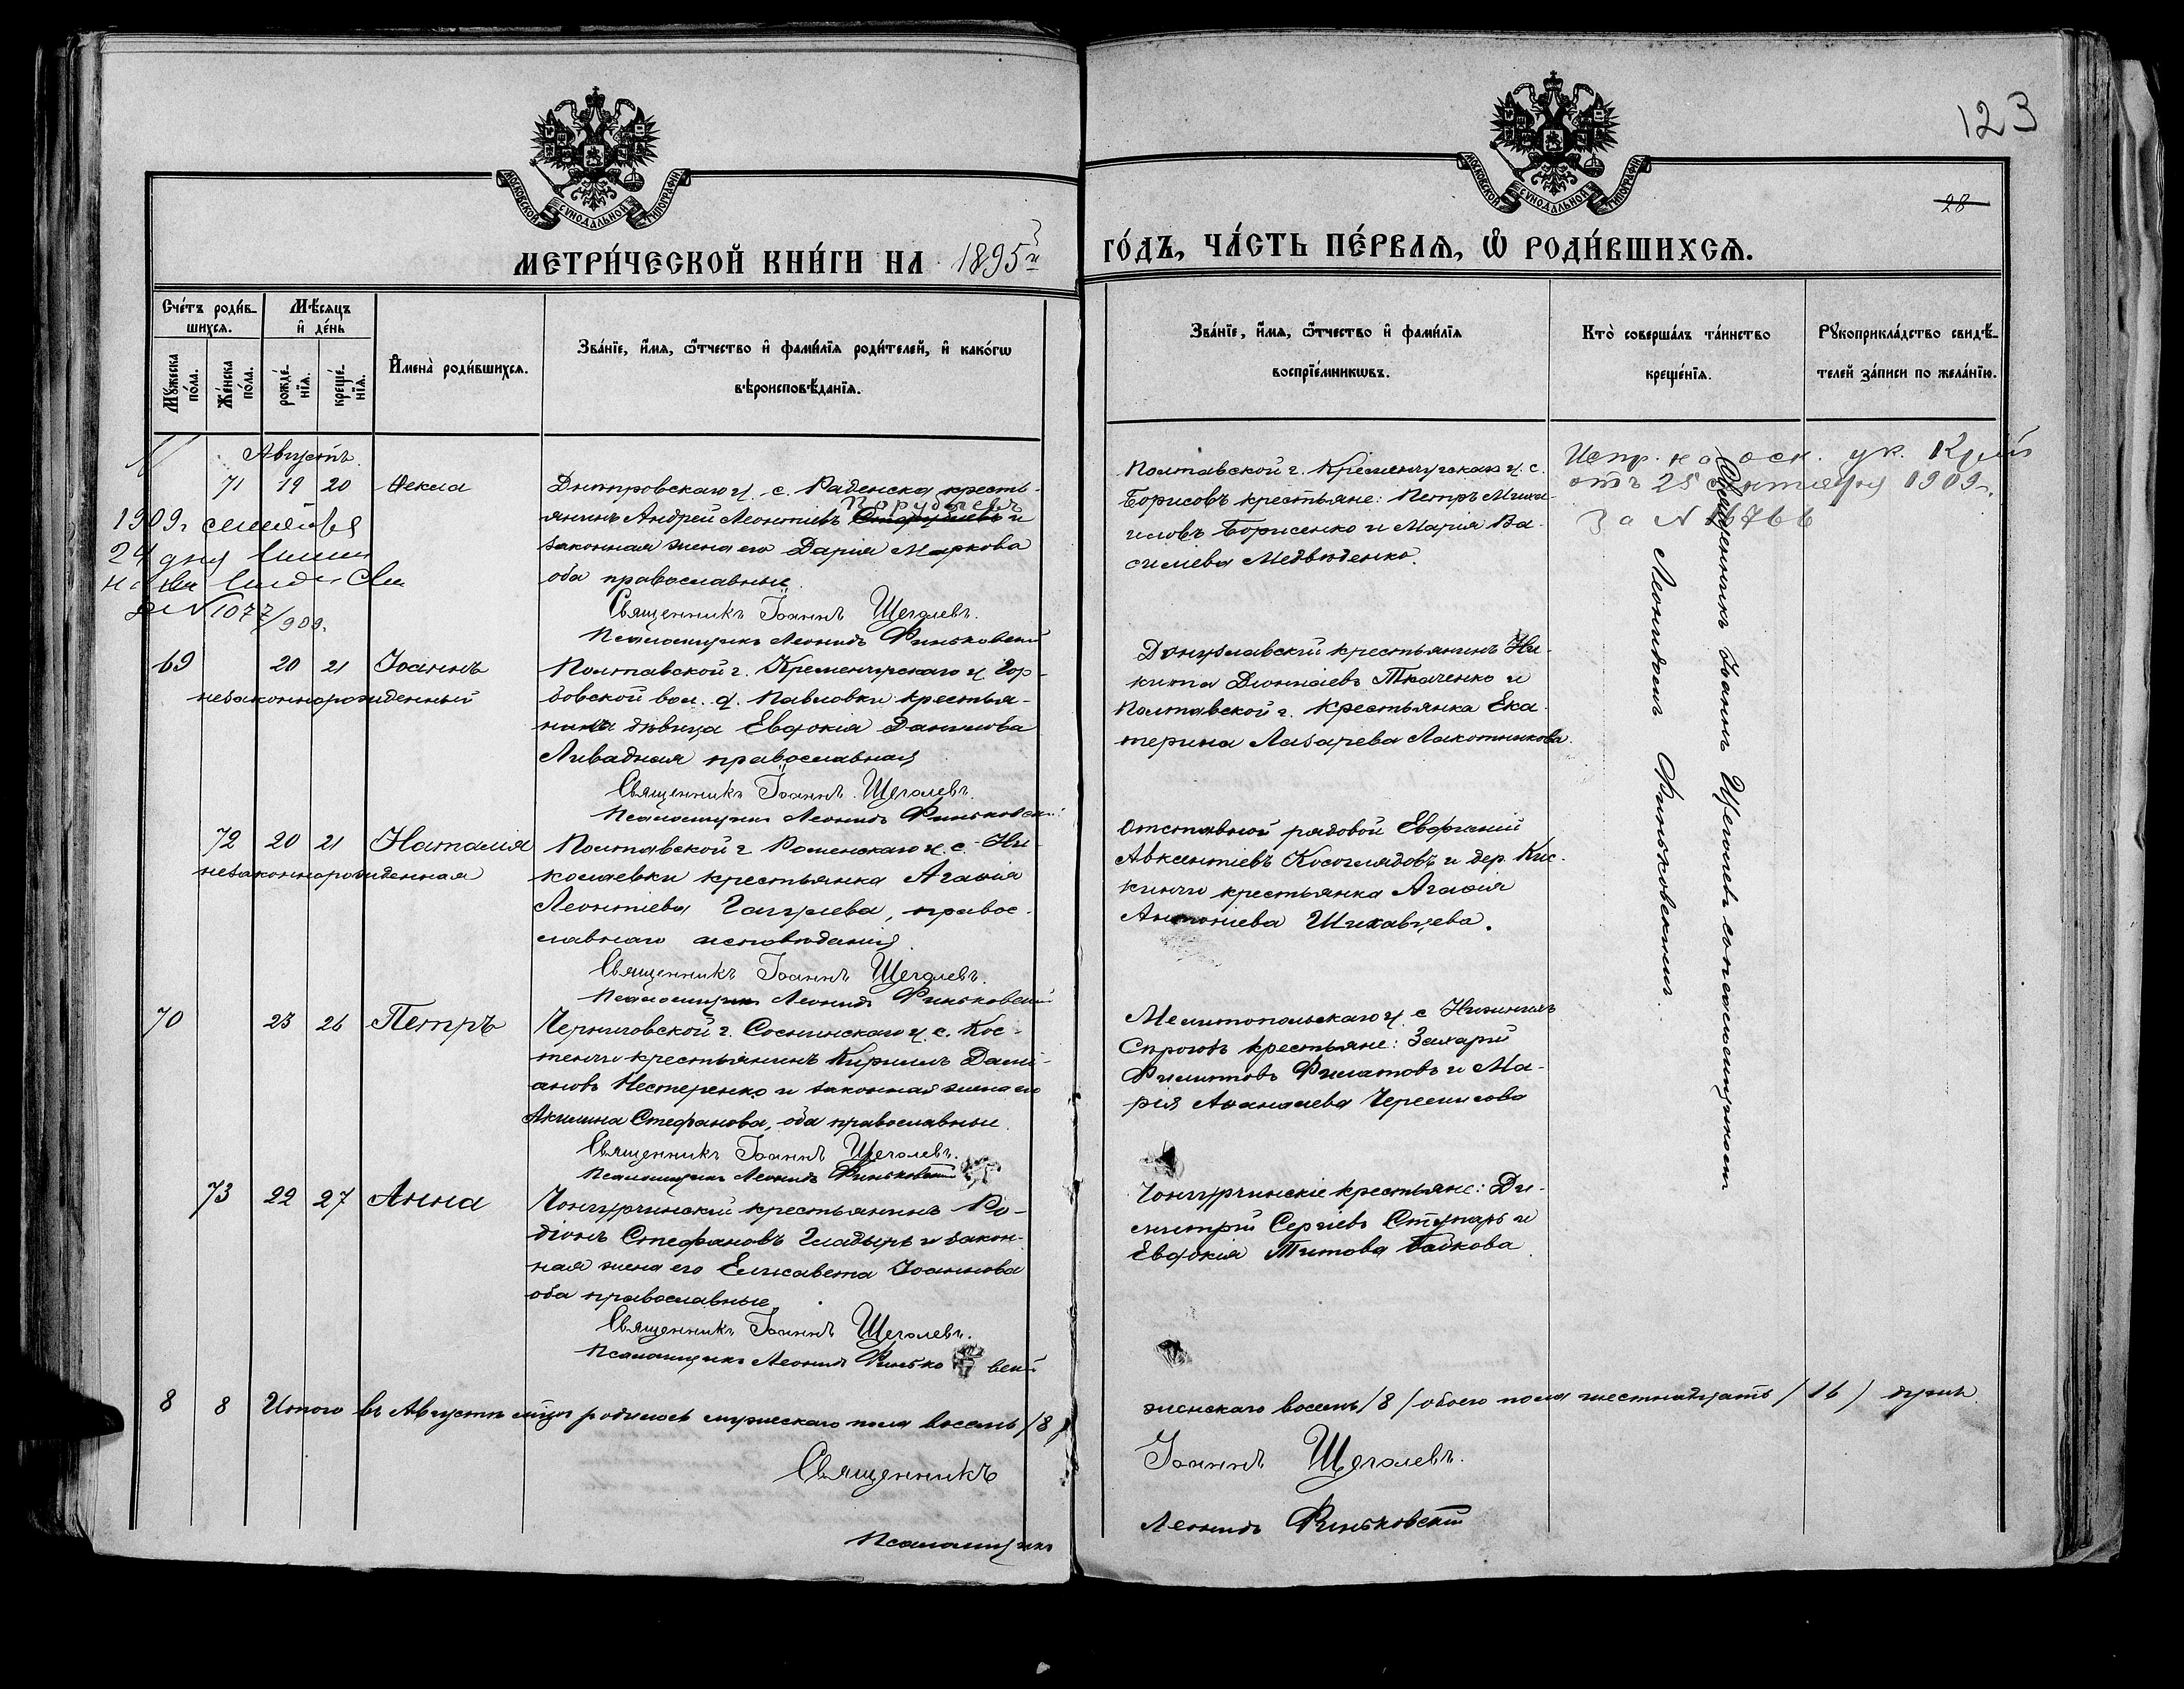 123
28
МОСКОВСКОЙ СУНОДАЛЬНОЙ ТИПОГРАФІИ
МОСКОВСКОЙ СУНОДАЛЬНОЙ ТИПОГРАФІИ
МЕТРИ́ЧЕСКОЙ КНИ́ГИ НА 1895й
ГО́ДЪ, ЧА́СТЬ ПЕ́РВАѦ, Ѡ РОДИ́ВШИХСѦ.
Сче́тъ роди́в-
шихсѧ.
Мѣ́сѧцъ
и де́нь
Мꙋ́жеска по́ла.
Же́нска по́ла.
рожде́-
нїѧ.
креще́-
нїѧ.
Имена̀ роди́вшихсѧ.
Зва́нїе, и́мѧ, ѻ́тчество и фами́лїѧ роди́телей, и како́гѡ
вѣроисповѣ́данїѧ.
Зва́нїе, и́мѧ, ѻ́тчество и фами́лїѧ
воспрїе́мникѡвъ.
Кто̀ соверша́лъ та́инство
креще́нїѧ.
Рꙋкоприкла́дство свидѣ́-
телей за́писи по жела́нїю.
Августъ.
71 19 20 Ѳекла
Днѣпровскаго у. с. Раденска кресть-
Порубаевъ
янинъ Андрей Леонтіевъ и
законная жена его Дарія Маркова
оба православные.
Священникъ Іоаннъ Щеголевъ.
Псаломщикъ Леонидъ Финьковскій
Полтавской г. Кременчугскаго у. с.
Борисовъ крестьяне: Петръ Миха-
иловъ Борисенко и Марія Ва-
силіева Медвѣденко.
Испр. на осн. ук.
отъ 25 октября 1909 г.
За №
1909 г. сентября
24 дня
№ 1077/909.
69 20 21 Іоаннъ
незаконнорожденный
Полтавской г. Кременчугскаго у. Гор-
бовской вол. д. Павловки крестья-
нка дѣвица Евдокія Даншова
Ливадная православная
Священникъ Іоаннъ Щеголевъ.
Псаломщикъ Леонидъ Финьковскій
Донузлавскій крестьянинъ Ни-
кита Діонисіевъ Ткаченко и
Полтавской г. крестьянка Ека-
терина Лазарева Лакотникова.
72 20 21 Наталія
незаконнорожденная
Полтавской г. Роменскаго у. с. Ни-
колаевки крестьянка Агафія
Леонтіева Гагулева, правос-
лавнаго исповѣданія.
Священникъ Іоаннъ Щеголевъ.
Псаломщикъ Леонидъ Финьковскій
Отставной рядовой Евфимій
Авксентіевъ Косоглядовъ и дер. Кис-
кинчи крестьянка Агафія
Антоніева Шихавцева.
70 23 26 Петръ
Черниговской г. Сосницкаго у. с. Кос-
тенчи крестьянинъ Кириллъ Дамі-
ановъ Нестеренко и законная жена его
Акилина Стефанова, оба православные.
Священникъ Іоаннъ Щеголевъ.
Псаломщикъ Леонидъ Финьковскій
Мелитопольскаго у. с. Нижнихъ
Сірогозъ крестьяне: Захарій
Филипповъ Филатовъ и Ма-
рія Аѳанасіева Черемисова
73 22 27 Анна
Чонгурчинскій крестьянинъ Ро-
діонъ Стефановъ Гладырь и закон-
ная жена его Елисавета Іоаннова
оба православные.
Священникъ Іоаннъ Щеголевъ.
Псаломщикъ Леонидъ Финьковскій
Чонгурчинскіе крестьяне: Ди-
митрій Сергіевъ Ступарь и
Евдокія Титова Байкова.
Священникъ Іоаннъ Щеголевъ съ псаломщикомъ
Леонидомъ Финьковскимъ.
8 8 Итого въ Августѣ мцѣ родилось мужескаго пола восемь /8/
женскаго восемь /8/ обоего пола шестнадцать /16/ душъ.
Священникъ Іоаннъ Щеголевъ.
Псаломщикъ Леонидъ Финьковскій